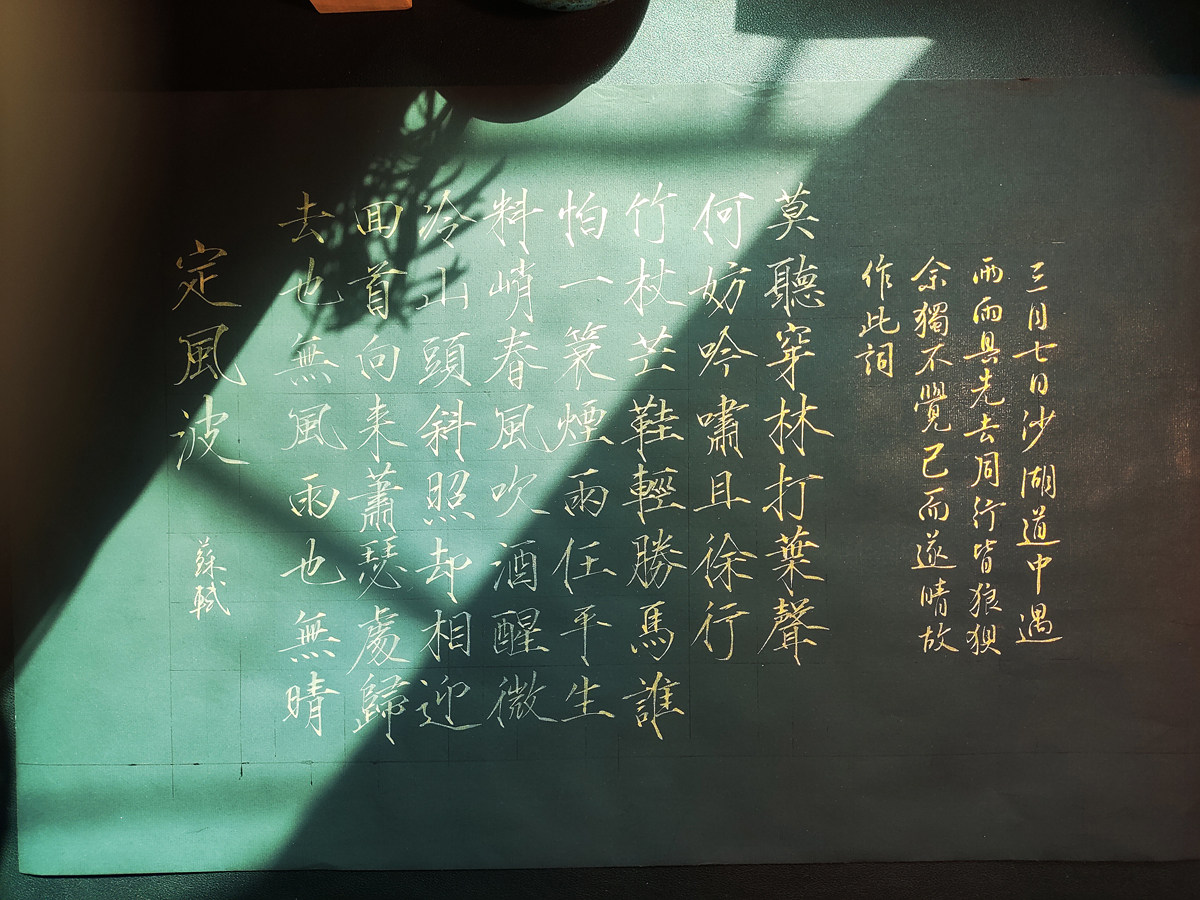 三月七日沙湖道中遇
雨雨具先去同行皆狼狽
余獨不覺已而遂晴故
作此詞
莫聽穿林打葉聲
何妨吟嘯且徐行
竹杖芒鞋輕勝馬誰
怕一簑煙雨任平生
料峭春風吹酒醒微
冷山頭斜照却相迎
回首向来蕭瑟處歸
去也無風雨也無晴
定風波
蘇軾